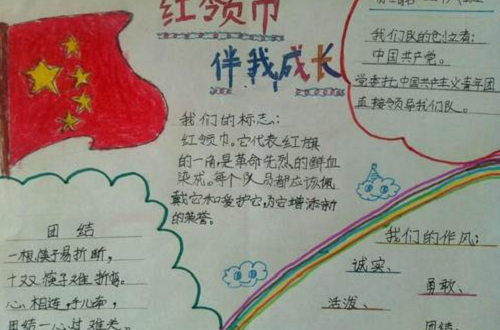 红领巾
伴我成长
我们队的创立者:
中国共产党。
党委托中国共产主义青年团
直接领导我们队。
我们的标志:
红领巾。它代表红旗
的一角,是革命先烈的鲜血
染成。每个队员都应该佩
戴它和爱护它,为它增添新
的荣誉。
团结
一根筷子易折断,
十双筷子难折弯。
心相连,手儿牵,
团结一心过难关。
我们的作风:
诚实、
勇敢、
活泼、
团结